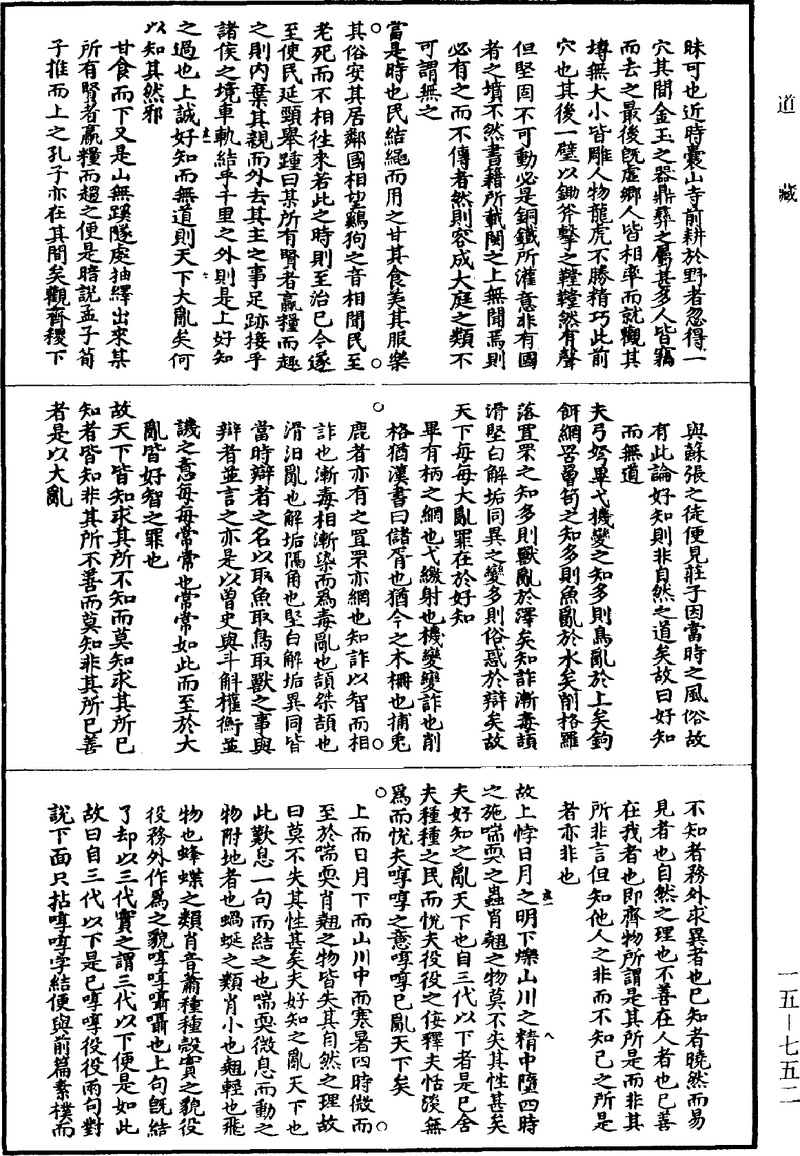 道藏
昧可也近時囊山寺前耕於野者忽得一
穴其間金玉之器鼎彝之屬甚多人皆竊
而去之最後旣虛鄉人皆相率而就觀其
塼無大小皆雕人物龍虎不勝精巧此前
穴也其後一壁以鋤斧擊之鞺鞺然有聲
但堅固不可動必是銅鐵所灌意非有國
者之墳不然書籍所載闕之上無聞焉則
必有之而不傳者然則容成大庭之類不
可謂無之
當是時也民結繩而用之甘其食美其服樂
其俗安其居鄰國相望鷄狗之音相聞民至
老死而不相往來若此之時則至治已今遂
至使民延頸舉踵曰某所有賢者贏糧而趣
之則內棄其親而外去其主之事足跡接乎
諸侯之境車軌結乎千里之外則是上好知
之過也上誠好知而無道則天下大亂矣何
以知其然邪
甘食而下又是山無蹊隧處抽繹出來某
所有賢者贏糧而趨之便是暗說孟子荀
子推而上之孔子亦在其間矣觀齊稷下
與蘇張之徒便見莊子因當時之風俗故
有此論好知則非自然之道矣故曰好知
而無道
夫弓弩畢弋機變之知多則鳥亂於上矣鉤
餌網罟罾笱之知多則魚亂於水矣削格羅
落罝罘之知多則獸亂於澤矣知詐漸毒頡
滑堅白解垢同異之變多則俗惑於辯矣故
天下每每大亂罪在於好知
畢有柄之網也弋繳射也機變變詐也削
格猶漢書曰儲胥也猶今之木柵也捕兎
鹿者亦有之罝罘亦網也知詐以智而相
詐也漸毒相漸染而爲毒亂也頡桀頡也
滑汨亂也解垢隔角也堅白解垢異同皆
當時辯者之名以取魚取鳥取獸之事與
辯者並言之亦是以曾史與斗斛權衡並
譏之意每每常常也常常如此而至於大
亂皆好智之罪也
故天下皆知求其所不知而莫知求其所已
知者皆知非其所不善而莫知非其所已善
者是以大亂
不知者務外求異者也已知者曉然而易
見者也自然之理也不善在人者也已善
在我者也即齊物所謂是其所是而非其
所非言但知他人之非而不知己之所是
者亦非也
故上悖日月之明下爍山川之精中墮四時
之施喘耎之蟲肖翹之物莫不失其性甚矣
夫好知之亂天下也自三代以下者是已舍
夫種種之民而悅夫役役之佞釋夫恬淡無
爲而悅夫啍啍之意啍啍已亂天下矣
上而日月下而山川中而寒暑四時微而
至於喘耎肖翹之物皆失其自然之理故
曰莫不失其性甚矣夫好知之亂天下也
此歎息一句而結之也喘耎微息而動之
物附地者也蝸蜒之類肖小也翹輕也飛
物也蜂蝶之類肖音蕭種種慤實之貌役
役務外作爲之貌啍啍囁囁也上句旣結
了却以三代實之謂三代以下便是如此
故曰自三代以下是已啍啍役役兩句對
說下面只拈啍啍字結便與前篇素樸而
一五—七五二